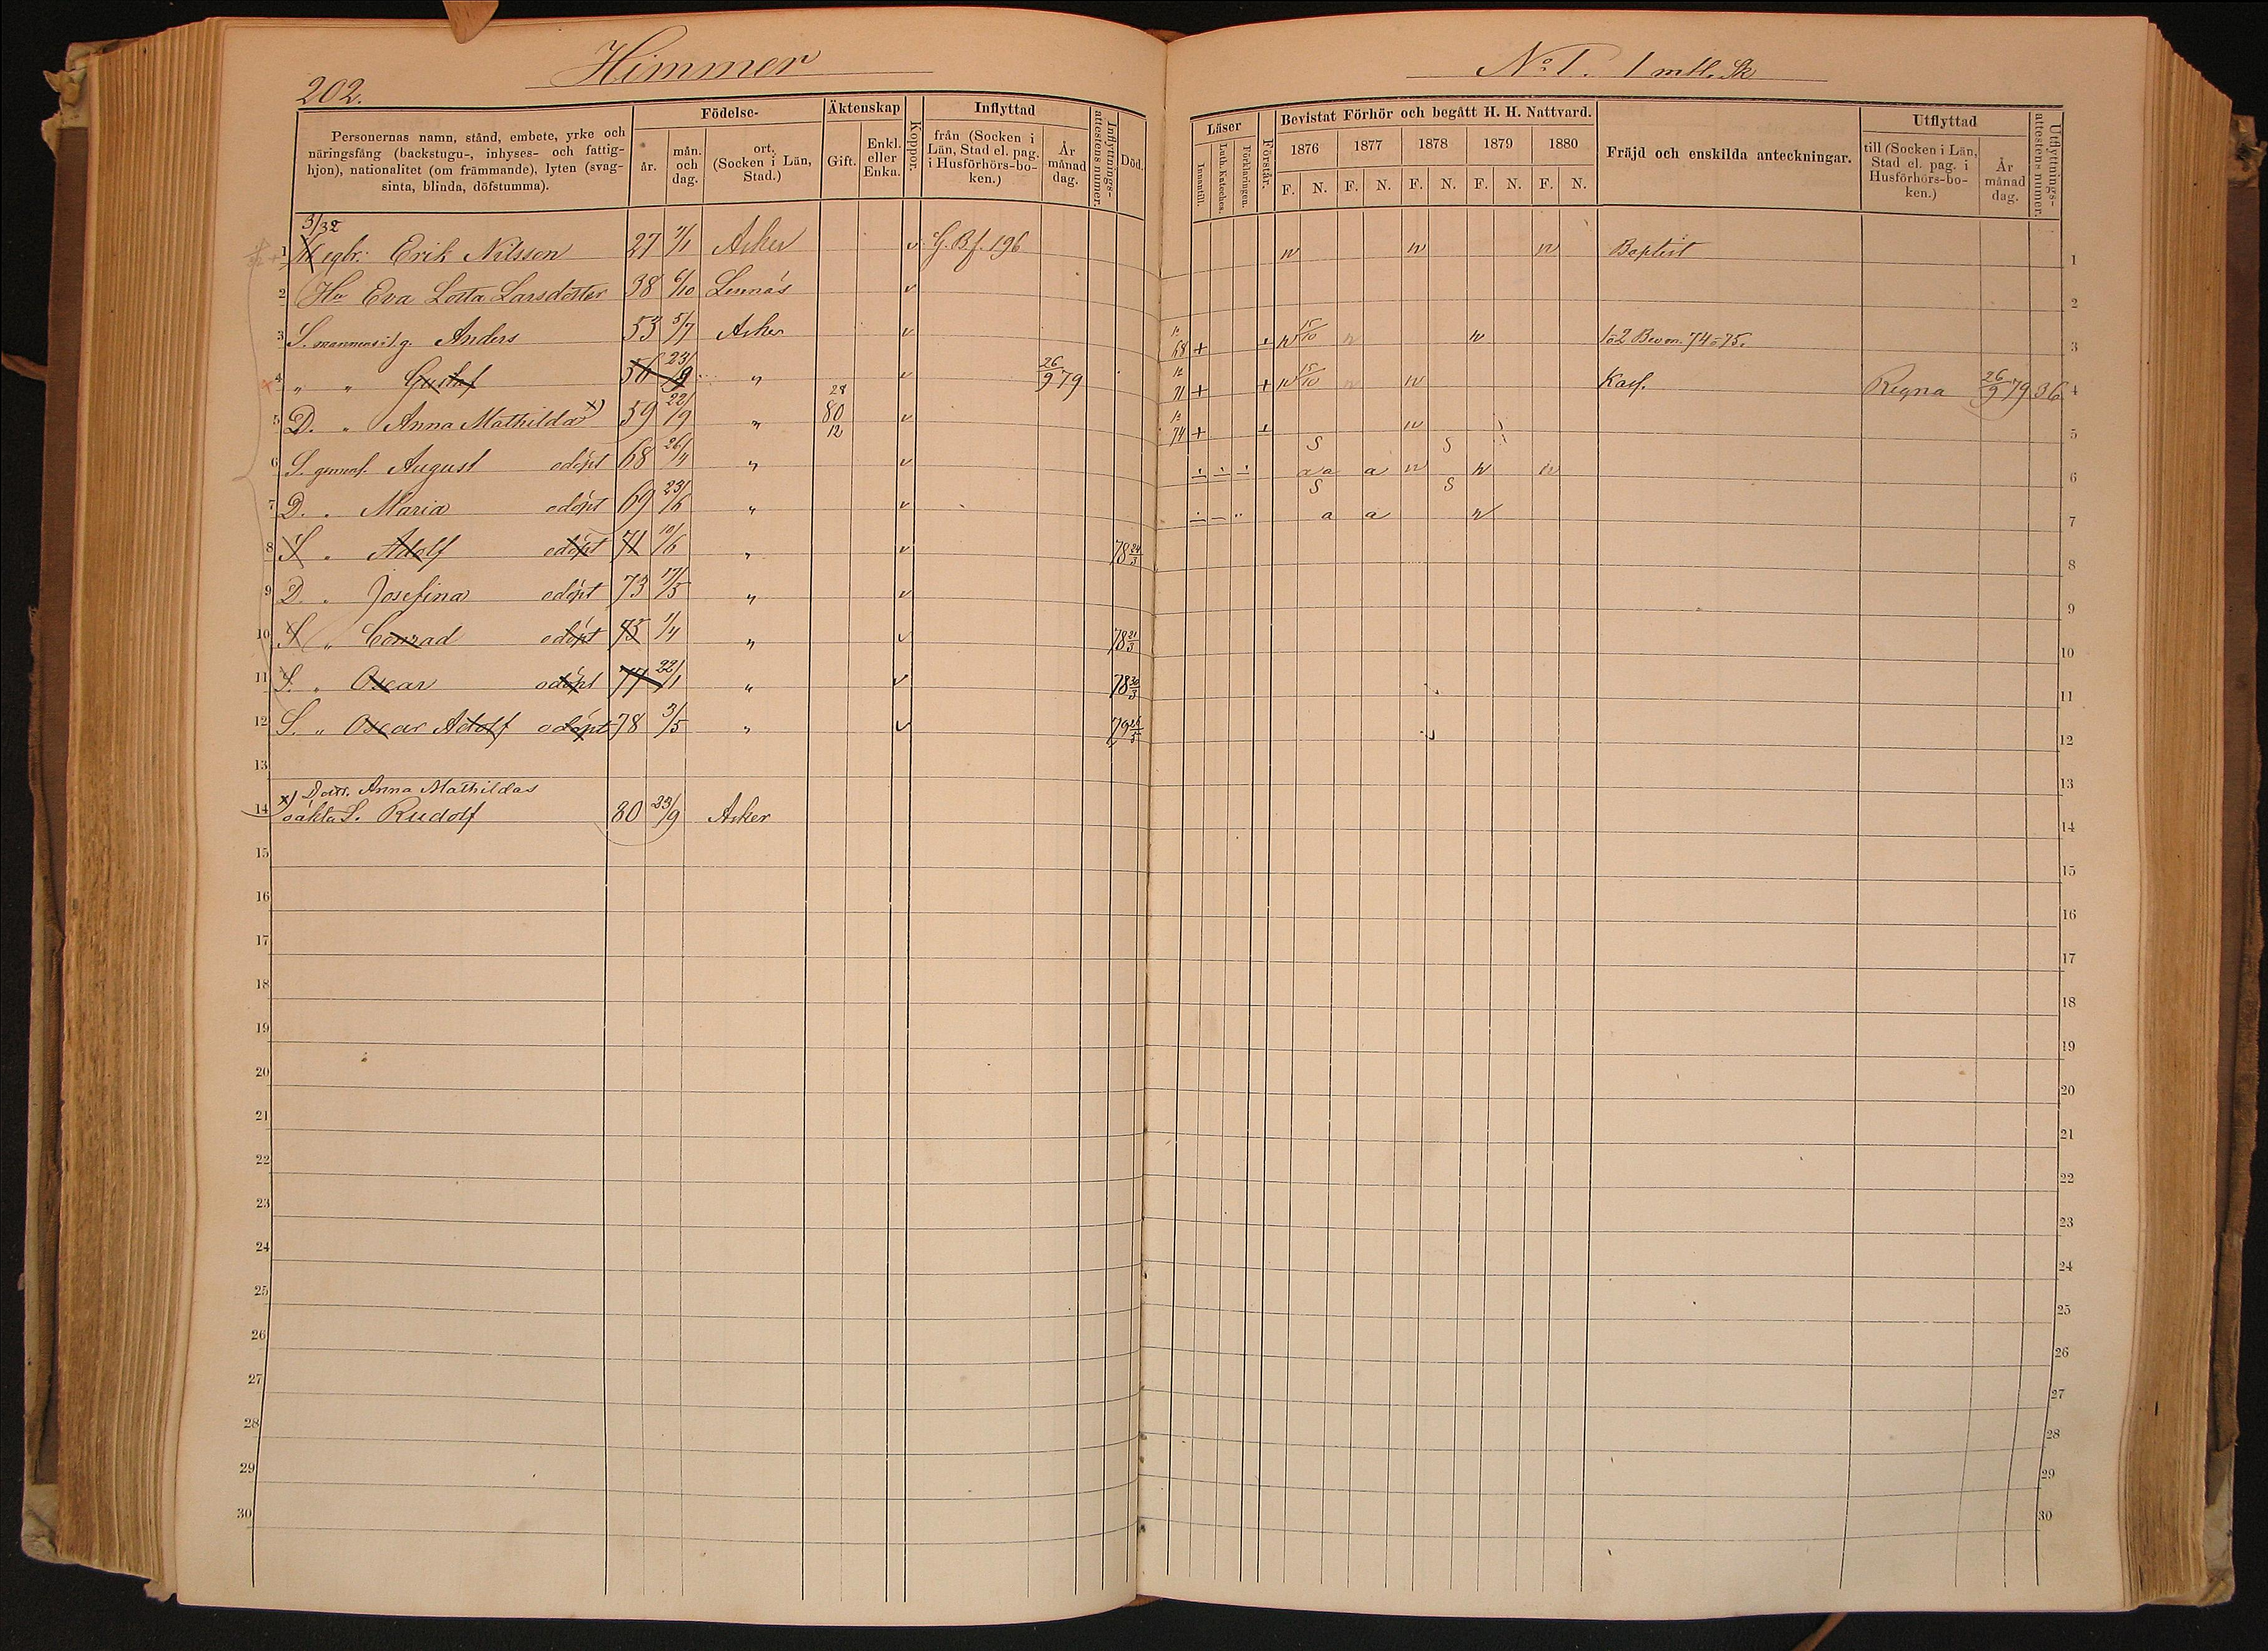 202.
Himmer
Personernas namn, stånd, embete, yrke och näringsfång (backstugu-, inhyses- och fattighjon), nationalitet (om främmande), lyten (svagsinta, blinda, döfstumma).
Födelse-
år.
mån. och dag.
ort. (Socken i Län, Stad.)
Äktenskap
Gift.
Enkl. eller Enka.
Koppor.
Inflyttad
från (Socken i Län, Stad el. pag. i Husförhörs-boken.)
År månad dag.
Inflyttnings-attestens numer.
Död.
3/32
1 egbr: Erik Nilsson 27 Asker v G. Bf. 196
2 Hu Eva Lotta Larsdotter 38 6/10 Lennås v
3 S. mannens i 1 g. Anders 53 5/7 Asker v
4 " " Gustaf 56 23/9 " v 26/9 79
5 D. " Anna Mathilda x) 59 22/9 " 28 80 12 v
6 S. gemens. August odöpt 68 26/4 " v
7 D. " Maria odöpt 69 23/6 " v
8 S " Adolf odöpt 71 10/6 " v 78 24/3
9 D. " Josefina odöpt 73 17/5 " v
10 S " Conrad odöpt 75 1/4 " v 78 21/3
11 S. " Oscar odöpt 77 22/1 " v 78 30/3
12 S. " Oscar Adolf odöpt 78 3/5 " v 79
13
x) Dottr. Anna Mathildas
14 oäkta S. Rudolf 80 23/9 Asker
15
16
17
18
19
20
21
22
23
24
25
26
27
28
29
30
No 1. 1 mtl. Sk
Läser
Innantill.
Luth. Kateches.
Förklaringen.
Förstår.
Bevistat Förhör och begått H. H. Nattvard.
1876 1877 1878 1879 1880
F. N. F. N. F. N. F. N. F. N.
Fräjd och enskilda anteckningar.
Utflyttad
till (Socken i Län, Stad el. pag. i Husförhörs-boken.)
År månad dag.
Utflyttnings-attestens nummer.
n n n Baptist 1
2
68 + n 15/10 n n 1 o 2 Bev on. 74 o 75. 3
71 + + n 15/10 n n Regna 26/9 79 36 4
74 + + n 5
S S
a a a n n n 6
S S
a a n 7
8
9
10
11
12
13
14
15
16
17
18
19
20
21
22
23
24
25
26
27
28
29
30